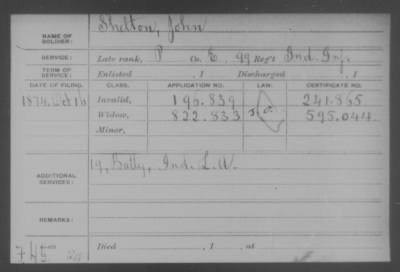 NAME OF SOLDIER: Shelton, John
SERVICE: Late rank, P Co. E, 99 Reg't Ind. Inf.
TERM OF SERVICE: Enlisted , 1 Discharged , 1
DATE OF FILING. CLASS. APPLICATION NO. LAW. CERTIFICATE NO.
1874, Oct 16 Invalid, 195.839 241.865
Widow, 822.833 595.044
Minor,
ADDITIONAL SERVICES: 19, Batty, Ind. L.A.
REMARKS:
Died , 1 , at